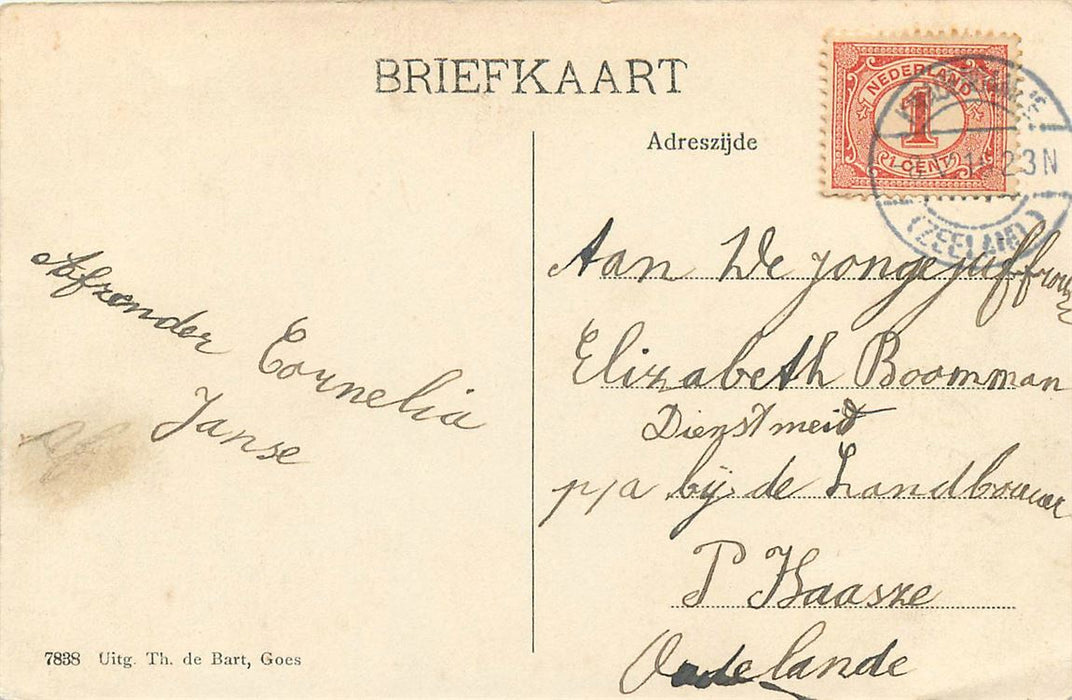 BRIEFKAART
Adreszijde
NEDERLAND
1
1 CENT
23N
(ZEELAND)
Afzender Cornelia
Janse
Aan De jongejuffrouw
Elizabeth Boomman
Dienstmeid
p/a bij de Landbouwer
P Haaske
Oudelande
7838 Uitg. Th. de Bart, Goes